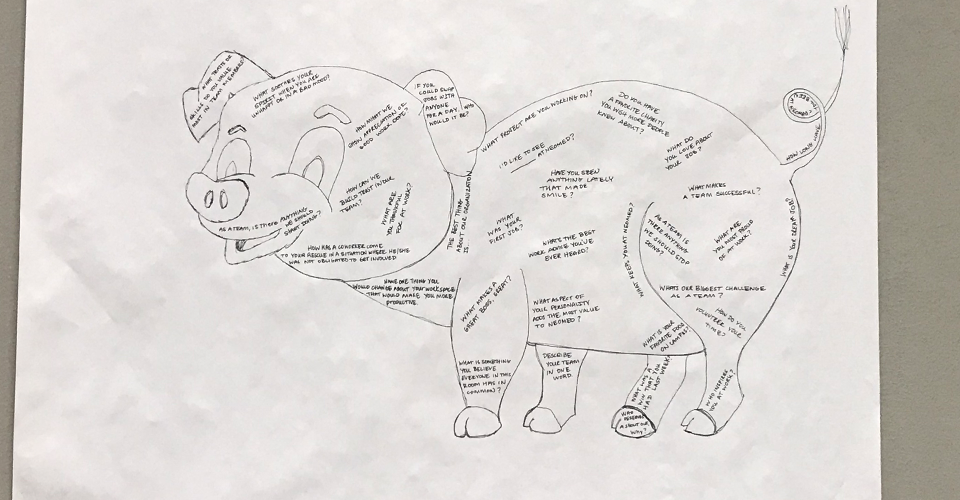 WHAT TRAITS OR
SKILLS DO YOU VALUE
MOST IN TEAM MEMBERS?
WHAT
YOUR
WHEN YOU ARE
UNHAPPY OR IN A BAD MOOD?
HOW MIGHT WE
SHOW APPRECIATION OR
GOOD WORK DONE?
IF YOU
COULD SWAP
JOBS WITH
ANYONE
FOR A DAY, WHO
WOULD IT BE?
HOW CAN WE
BUILD TRUST IN OUR
TEAM?
WHAT ARE
YOU THANKFUL
FOR AT WORK?
AS A TEAM, IS THERE ANYTHING
WE SHOULD
START DOING?
HOW HAS A COWORKER COME
TO YOUR RESCUE IN A SITUATION WHERE HE/SHE
WAS NOT OBLIGATED TO GET INVOLVED
ONE THING YOU
WOULD CHANGE ABOUT YOUR WORKSPACE
THAT WOULD MAKE YOU MORE
PRODUCTIVE.
THE BEST THING
ABOUT OUR ORGANIZATION
IS
WHAT PROJECT ARE YOU WORKING ON?
I'D LIKE TO SEE
AT NEOMED?
DO YOU HAVE
A FAVORITE CHARITY
YOU WISH MORE PEOPLE
KNEW ABOUT?
WHAT DO
YOU LOVE ABOUT
YOUR JOB?
HAVE YOU SEEN
ANYTHING LATELY
THAT MADE
SMILE?
WHAT MAKES
A TEAM SUCCESSFUL?
WHAT
WAS YOUR
FIRST JOB?
WHAT'S THE BEST
WORK ADVICE YOU'VE
EVER HEARD?
WHAT KEEPS YOU AT NEOMED?
AS A TEAM, IS
THERE ANYTHING
WE SHOULD STOP
DOING?
WHAT ARE
YOU MOST PROUD
OF AT WORK?
WHAT IS YOUR DREAM JOB?
HOW LONG HAVE
NEOMED?
WHATS OUR BIGGEST CHALLENGE
AS A TEAM?
HOW DO YOU
VOLUNTEER YOUR
TIME?
WHAT MAKES A
GREAT BOSS, GREAT?
WHAT ASPECT OF
YOUR PERSONALITY
ADDS THE MOST VALUE
TO NEOMED?
WHAT IS YOUR
FAVORITE FOOD
ON CAMPUS?
WHAT IS SOMETHING
YOU BELIEVE
EVERYONE IN THIS
ROOM HAS IN
COMMON?
DESCRIBE
YOUR TEAM
IN ONE
WORD
WHAT WAS A
WIN THAT YOU
HAD LAST WEEK
ABOUT OUR
WHY?
WHO INSPIRES
YOU AT WORK?